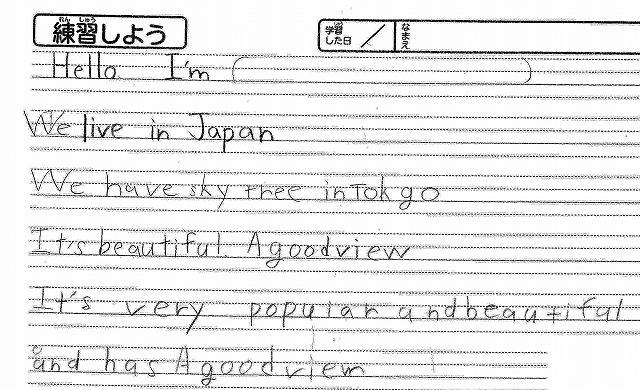 練習しよう
れん しゅう
学習した日 / なまえ
がくしゅう
Hello I'm ( )
We live in Japan
We have sky thee in Tokgo
It's beautiful. A good view
It's very popular and beautiful
and has A good view